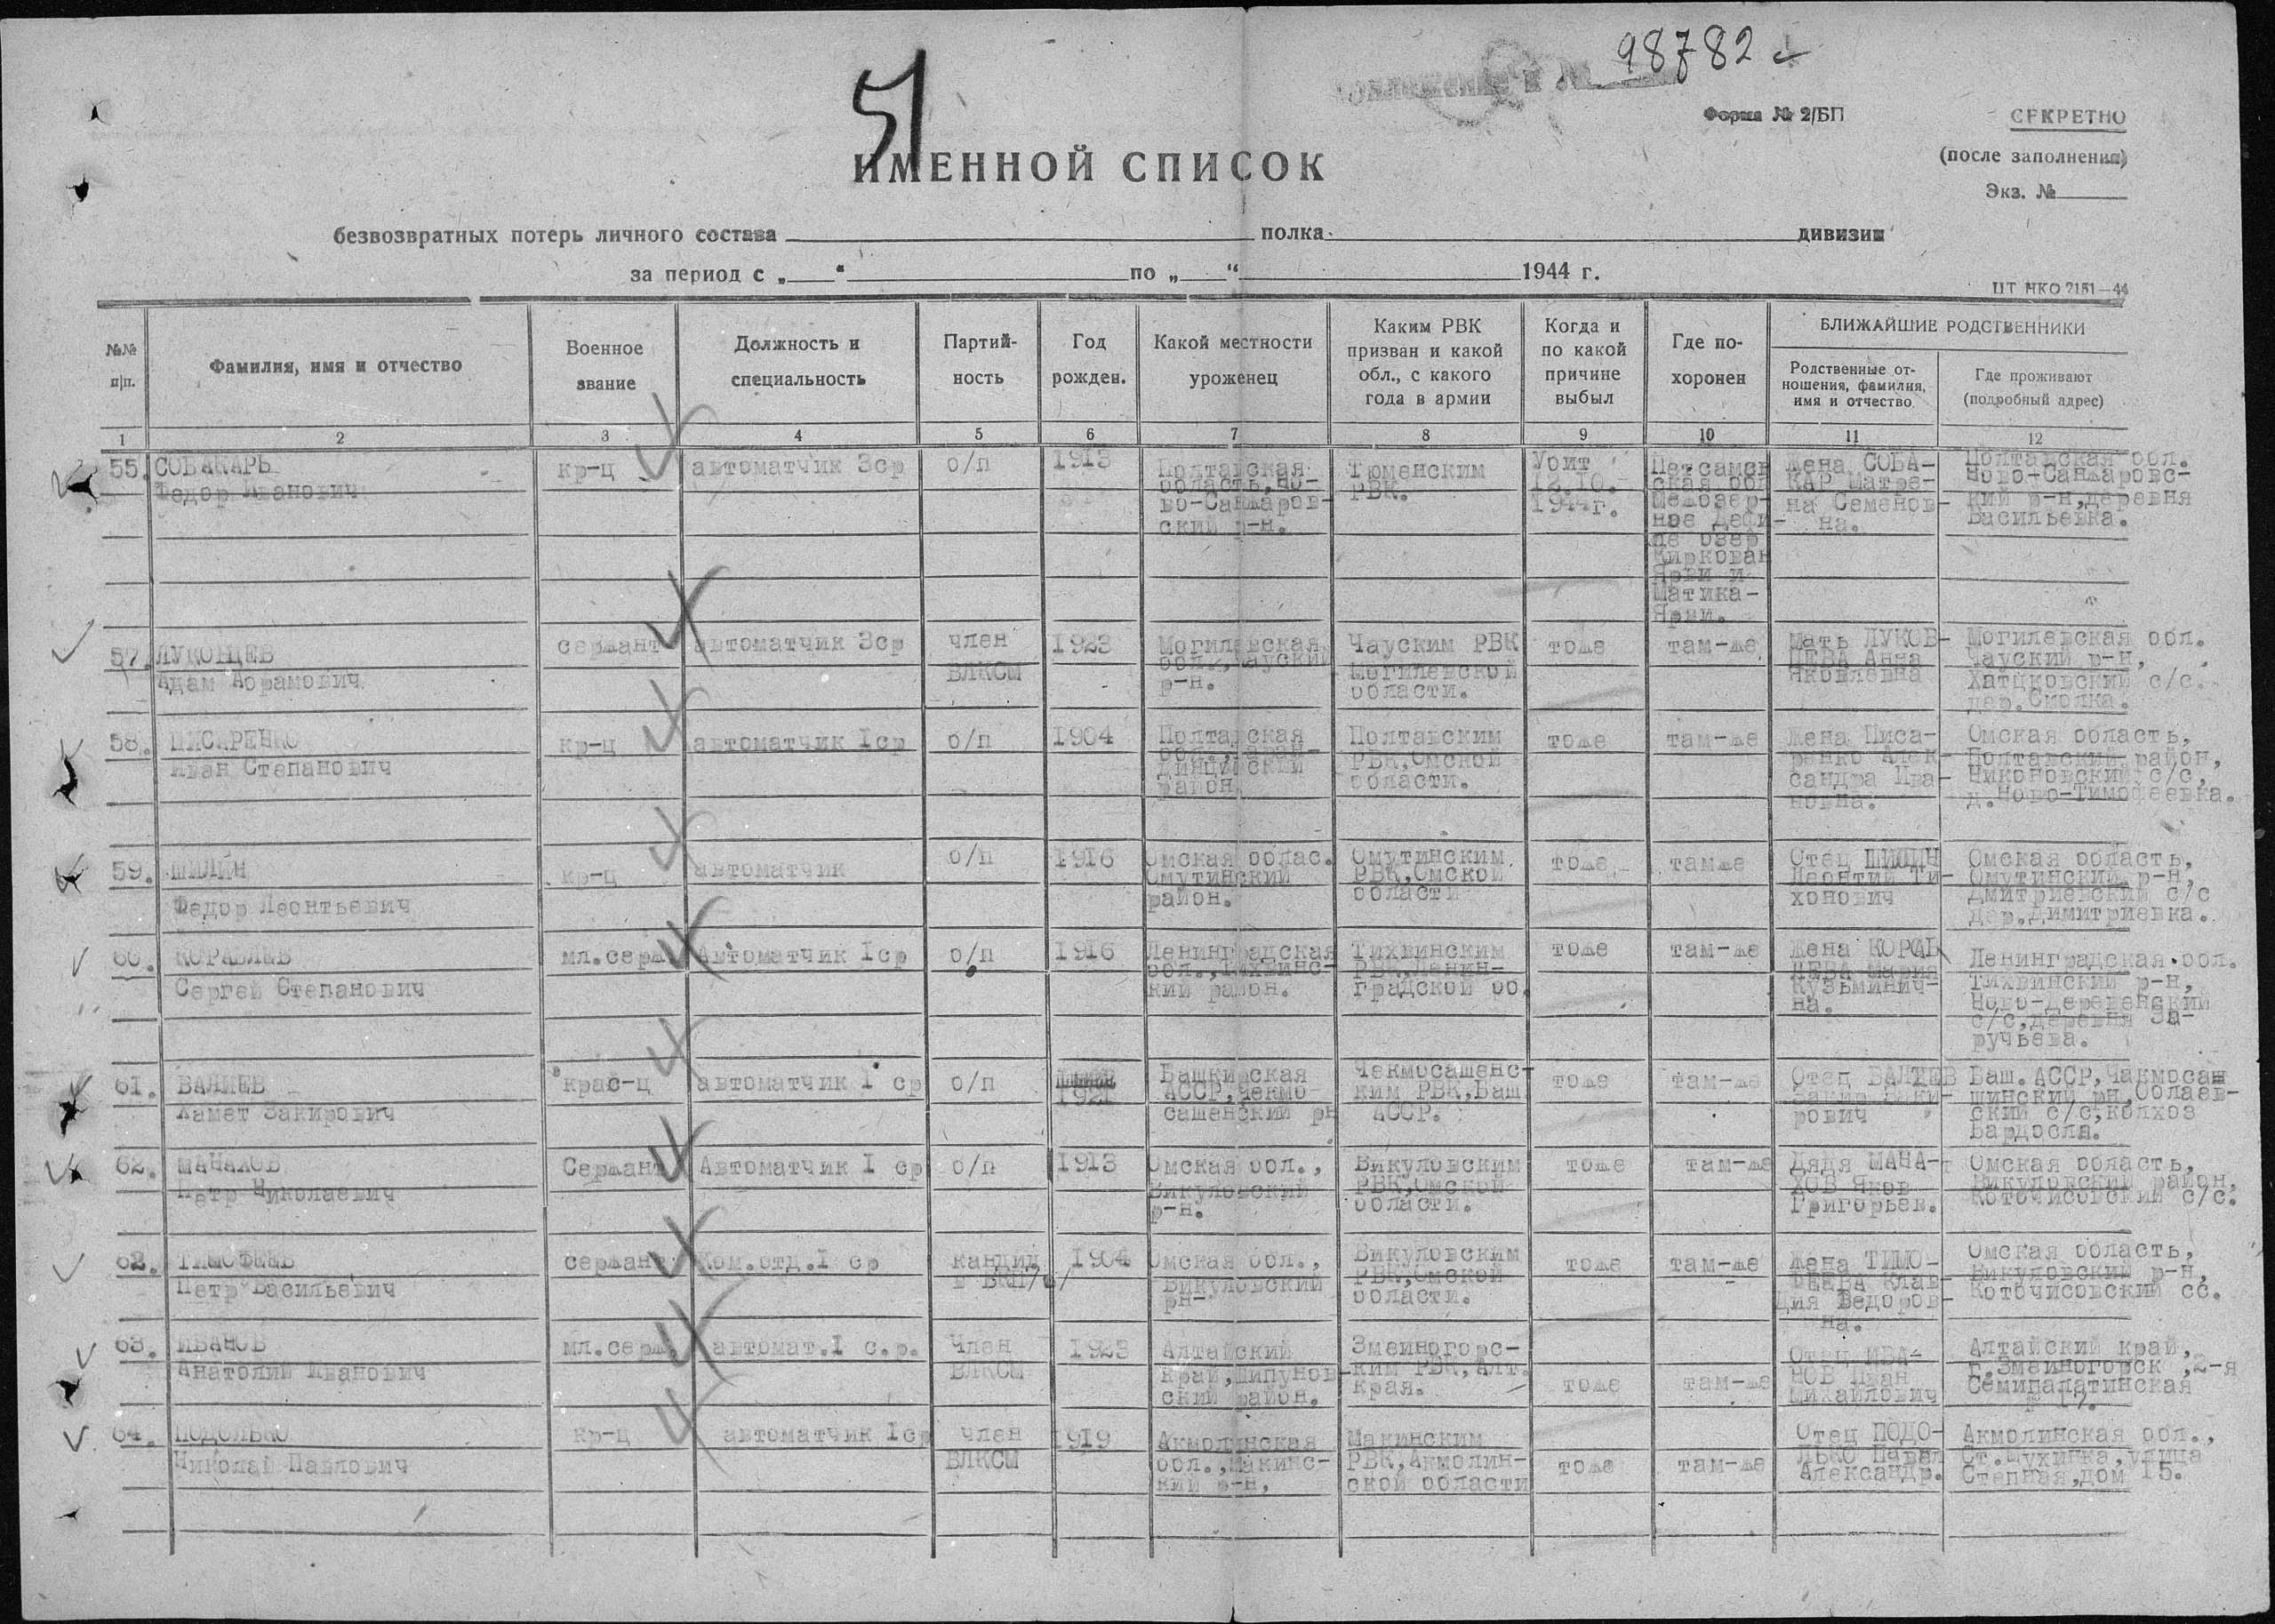 51
98782
Форма № 2/БП
СЕКРЕТНО
(после заполнения)
Экз. №
ИМЕННОЙ СПИСОК
безвозвратных потерь личного состава полка дивизии
за период с „ “ по „ “ 1944 г.
ЦТ НКО 2151—44
№№ п/п.
Фамилия, имя и отчество
Военное звание
Должность и специальность
Партий-
ность
Год рожден.
Какой местности уроженец
Каким РВК
призван и какой
обл., с какого
года в армии
Когда и
по какой
причине
выбыл
Где по-
хоронен
БЛИЖАЙШИЕ РОДСТВЕННИКИ
Родственные от-
ношения, фамилия,
имя и отчество
Где проживают
(подробный адрес)
1 2 3 4 5 6 7 8 9 10 11 12
55. СОБАКАРЬ
Федор Иванович
кр-ц
автоматчик 3ср
о/п
1913
Полтавская
область, Но-
во-Санжаров-
ский р-н.
Тюменским
РВК.
Убит
12.10.
1944г.
Петсамов
ская обл
Межозер-
ное Дефи-
ле озер
Киркован
Ярви и
Матика-
Ярви.
Жена СОБА-
КАР Матре-
на Семенов-
на.
Полтавская обл.
Ново-Санжаровс-
кий р-н,деревня
Васильевка.
57. ЛУКОВЦЕВ
Адам Абрамович
сержант
автоматчик 3ср
член
ВЛКСМ
1923
Могилевская
обл.,Чауский
р-н.
Чауским РВК
Могилевской
области.
тоже
там-же
Мать ЛУКОВ-
ЦЕВА Анна
Яковлевна
Могилевская обл.
Чауский р-н,
Хатцковский с/с.
дер.Смолка.
58. ПИСАРЕНКО
Иван Степанович
кр-ц
автоматчик 1ср
о/п
1904
Полтавская
район
Полтавским
РВК,Омской
области.
тоже
там-же
Жена Писа-
ренко Алек-
сандра Ива-
новна.
Омская область,
Полтавский район,
Никоновский с/с,
д.Ново-Тимофеевка.
59. ШИЛИН
Федор Леонтьевич
кр-ц
автоматчик
о/п
1916
Омская облас.
Омутинский
район.
Омутинским
РВК,Омской
области
тоже
тамже
Отец ШИЛИН
Леонтий Ти-
хонович
Омская область,
Омутинский р-н,
Дмитриевский с/с
дер.Димитриевка.
60. КОРАБЛЕВ
Сергей Степанович
мл.серж
Автоматчик 1ср
о/п
1916
Ленинградская
обл.,Тихвинс-
кий район.
Тихвинским
РВК,Ленин-
градской об.
тоже
там-же
Жена КОРАБ
ЛЕВА Мария
Кузьминич-
на.
Ленинградская обл.
Тихвинский р-н,
Ново-Деревенский
с/с,деревня За-
ручьева.
61. ВАЛИЕВ
Хамет Закирович
крас-ц
автоматчик 1 ср
о/п
1921
Башкирская
АССР,Чекмо
сашенский рн
Чекмосашенс-
ким РВК,Баш.
АССР.
тоже
там-же
Отец ВАЛИЕВ
рович
Баш.АССР,Чакмосаш
шинский рн,Облаев-
ский с/с,колхоз
Бардосла.
62. МАНАХОВ
Петр Николаевич
Сержант
Автоматчик 1 ср
о/п
1913
Омская обл.,
Викуловский
р-н.
Викуловским
РВК,Омской
области.
тоже
там-же
Дядя МАНА-
ХОВ Яков
Григорьев.
Омская область,
Викуловский район,
Коточисовский с/с.
62. ТИМОФЕЕВ
Петр Васильевич
сержант
Ком.отд.1 ср
кандид.
в ВКП/б/
1904
Омская обл.,
Викуловский
рн-
Викуловским
РВК,Омской
области.
тоже
там-же
Жена ТИМО-
ФЕЕВА Клав-
дия Ведоров-
на.
Омская область,
Викуловский р-н,
Коточисовский сс.
63. ИВАНОВ
Анатолий Иванович
мл.серж.
автомат.1 с.р.
Член
ВЛКСМ
1923
Алтайский
край,Шипунов-
ский район.
Змеиногорс-
ким РВК,Алт.
края.
тоже
там-же
Отец ИВА-
НОВ Иван
Михайлович
Алтайский край,
г.Змеиногорск ,2-я
Семипалатинская
64. ПОДОЛЬКО
Николай Павлович
кр-ц
автоматчик 1ср
член
ВЛКСМ
1919
Акмолинская
обл.,Макинс-
кий р-н,
Макинским
РВК,Акмолин-
ской области
тоже
там-же
Отец ПОДО-
ЛЬКО Павел
Александр.
Акмолинская обл.,
Ст.Мухинка,улица
Степная,дом 15.